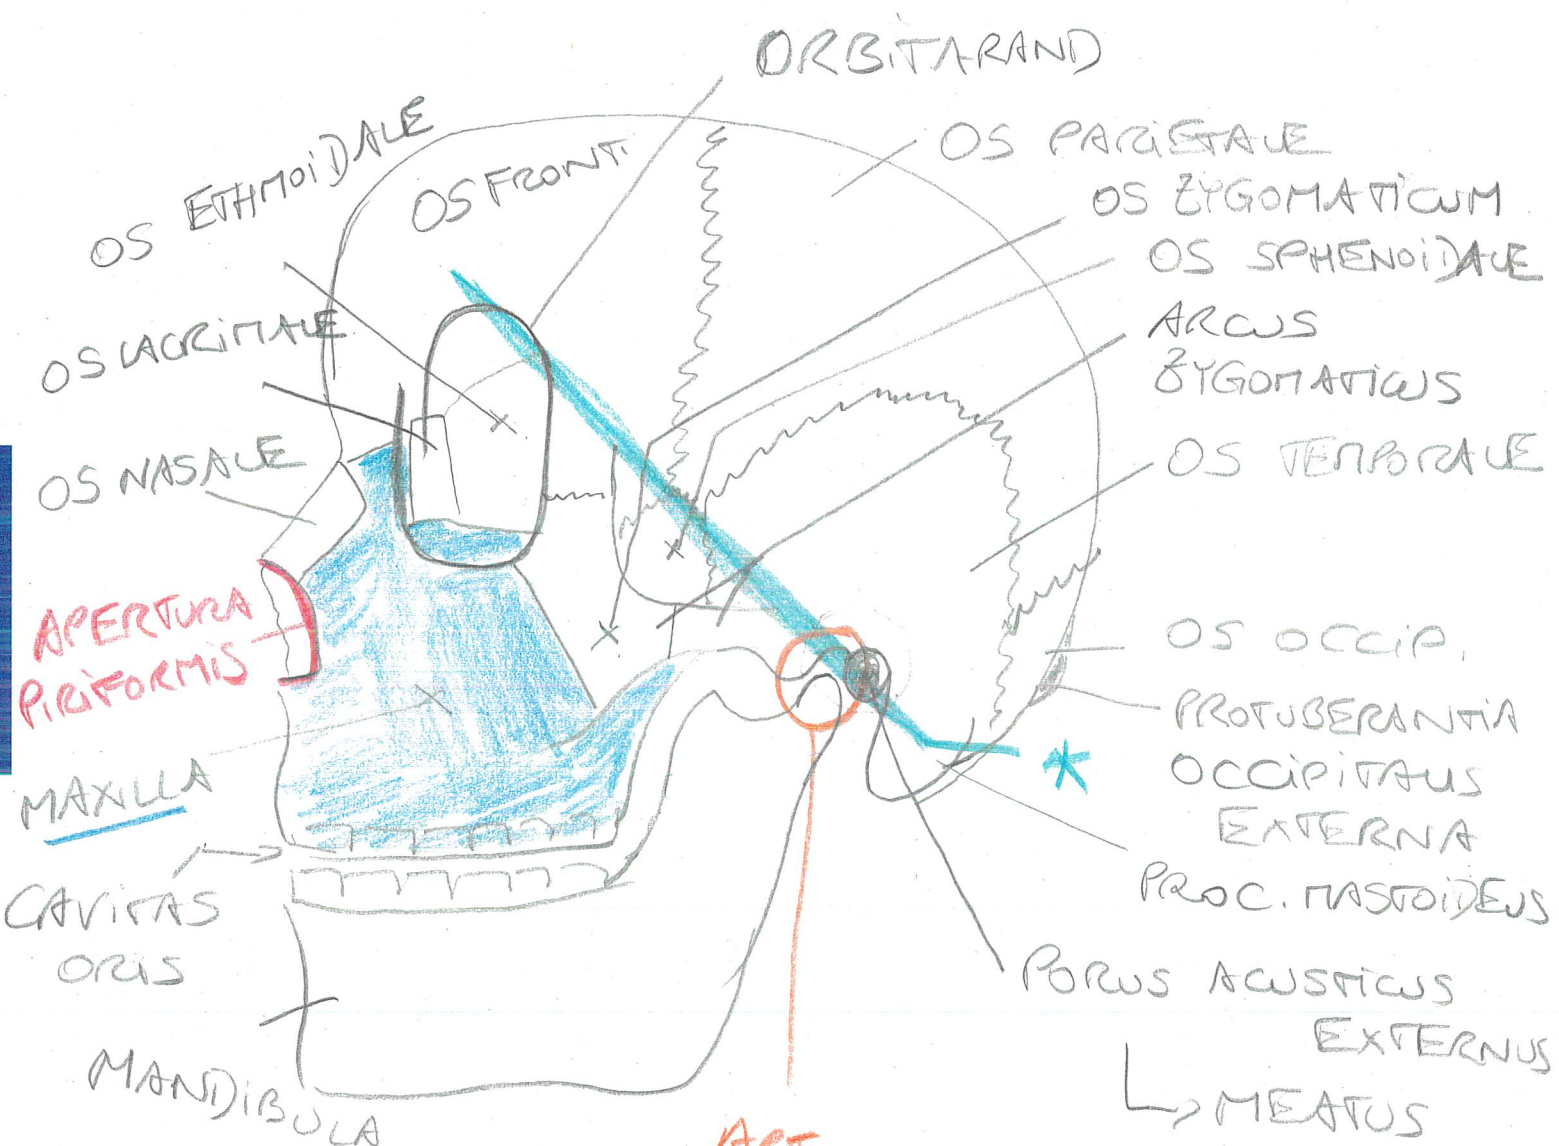 ORBITARAND
OS ETHMOIDALE
OS FRONT.
OS PARIETALE
OS ZYGOMATICUM
OS SPHENOIDALE
ARCUS
ZYGOMATICUS
OS LACRIMALE
OS NASALE
OS TEMPORALE
APERTURA
PIRIFORMIS
OS OCCIP.
PROTUBERANTIA
OCCIPITALIS
EXTERNA
*
MAXILLA
PROC. MASTOIDEUS
CAVITAS
ORIS
PORUS ACUSTICUS
EXTERNUS
MEATUS
MANDIBULA
ART